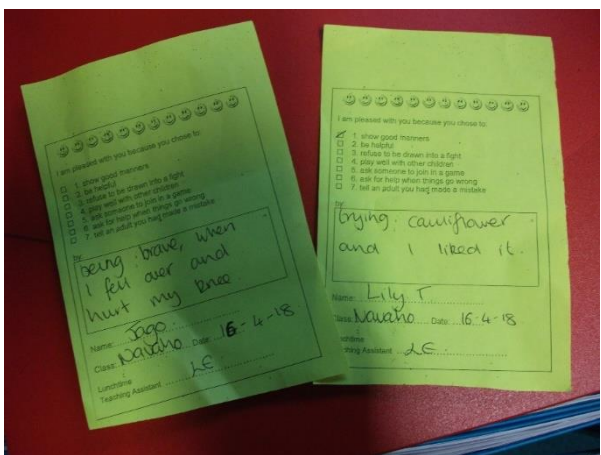 I am pleased with you because you chose to:
1. show good manners
2. be helpful
3. refuse to be drawn into a fight
4. play well with other children
5. ask someone to join in a game
6. ask for help when things go wrong
7. tell an adult you had made a mistake
by
being brave, when
I fell over and
hurt my knee
Name: Jago.
Class: Navaho Date: 16-4-18
Lunchtime
Teaching Assistant LE
I am pleased with you because you chose to:
1. show good manners
2. be helpful
3. refuse to be drawn into a fight
4. play well with other children
5. ask someone to join in a game
6. ask for help when things go wrong
7. tell an adult you had made a mistake
by
trying cauliflower
and I liked it.
Name: Lily T
Class: Navaho Date: 16-4-18
Lunchtime
Teaching Assistant LE.